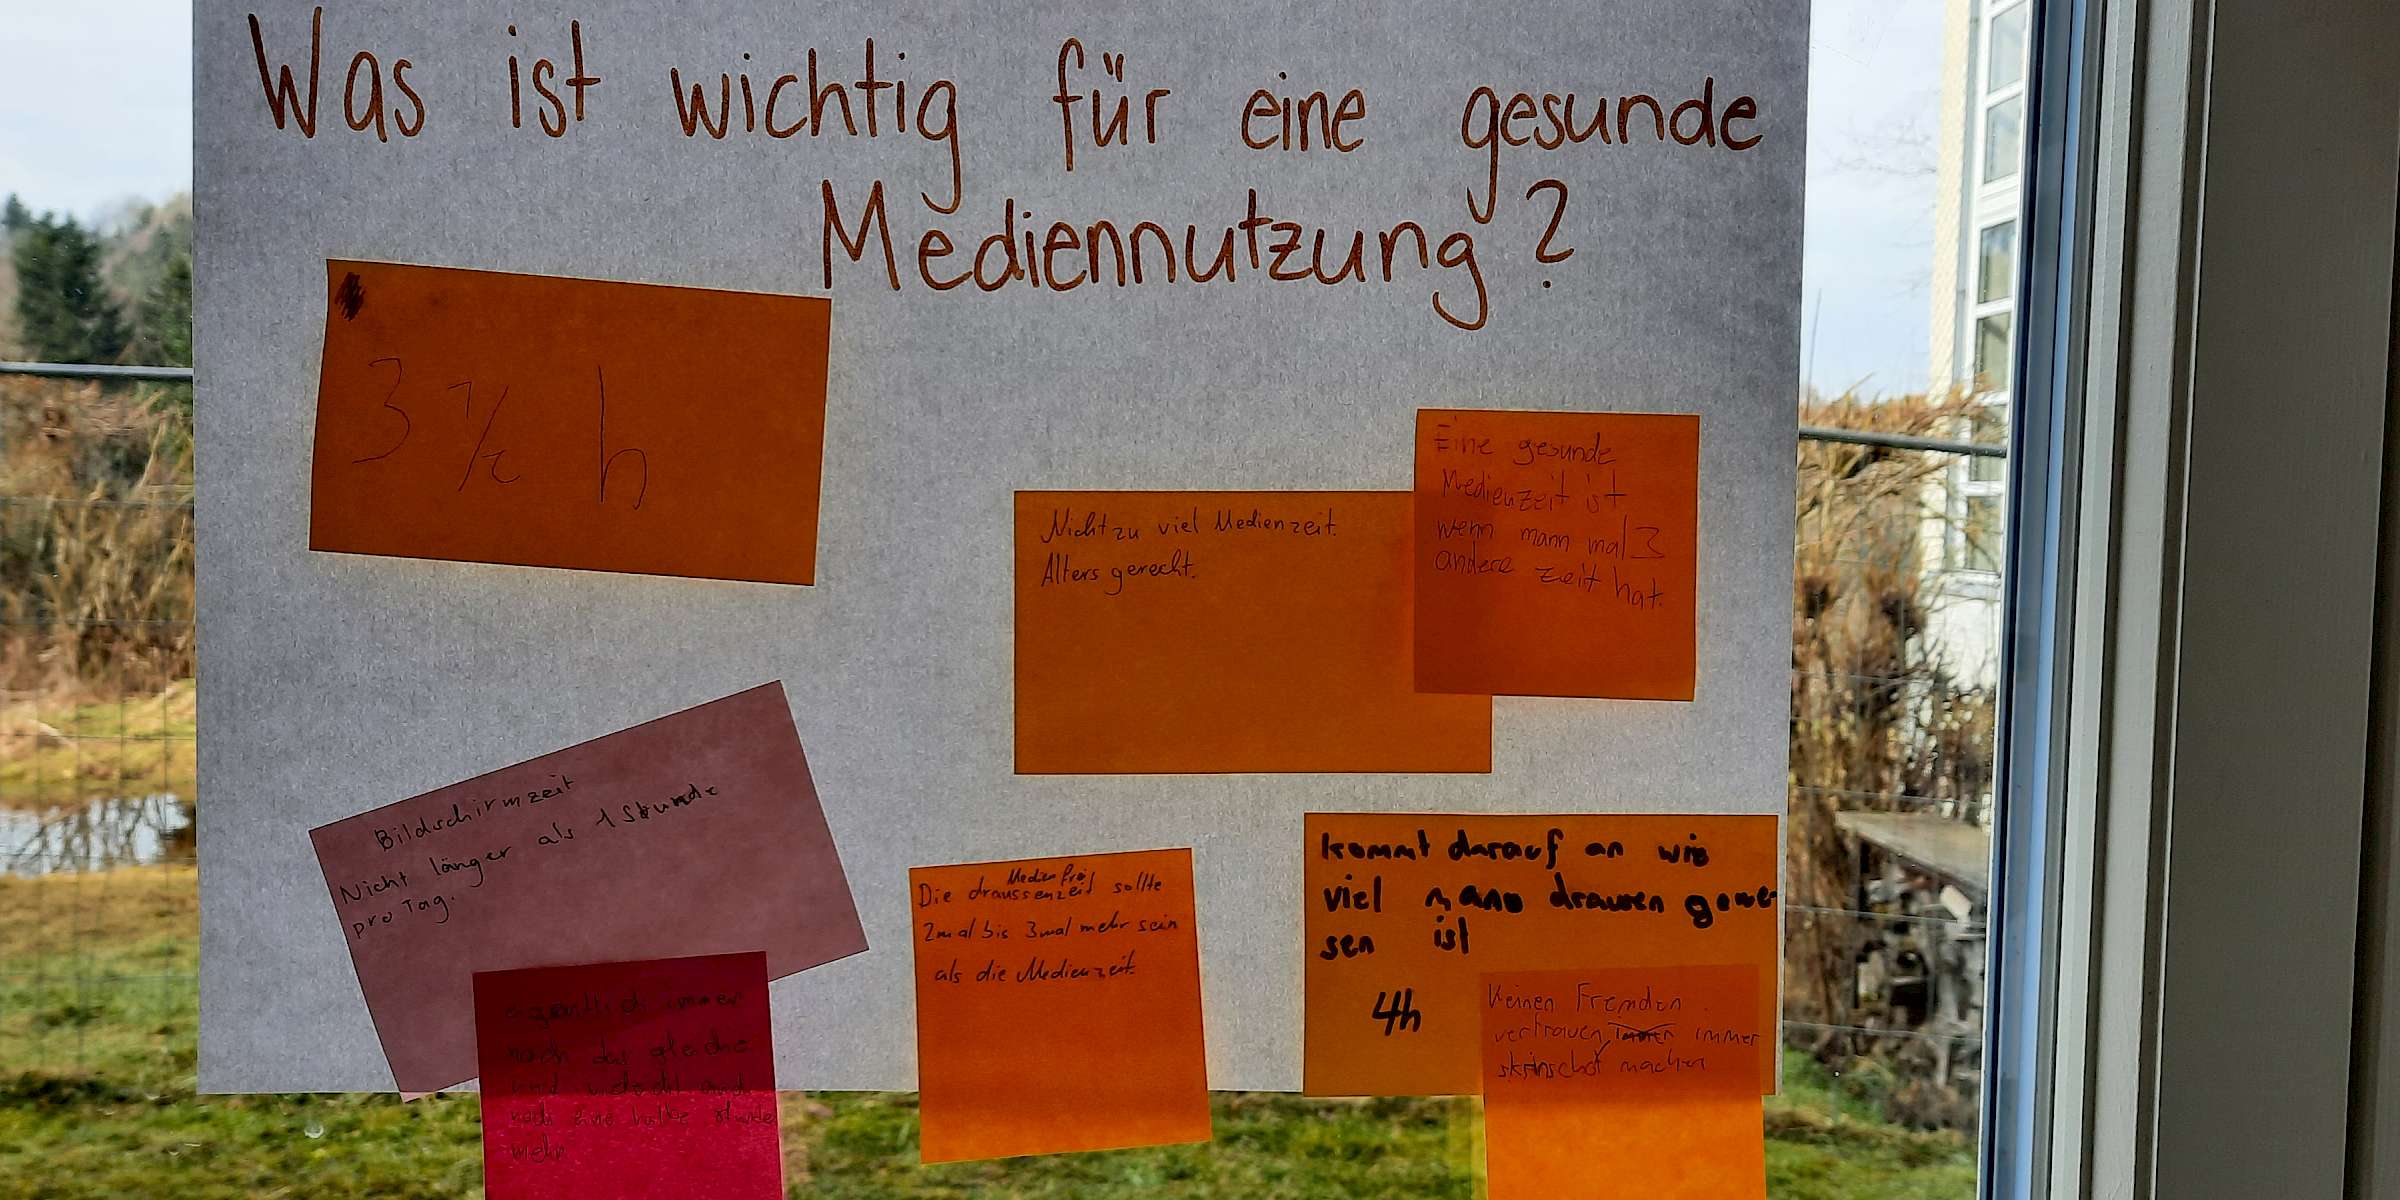 Was ist wichtig für eine gesunde
Mediennutzung?
3 1/2 h
Nicht zu viel Medienzeit.
Alters gerecht.
Eine gesunde
Medienzeit ist
wenn mann mal 3
andere zeit hat.
Bildschirmzeit
Nicht länger als 1 Stunde
pro Tag.
eigentlich immer
noch das gleiche
und auch
noch eine halbe stunde
mehr
Medien frei
Die draussenzeit sollte
2mal bis 3mal mehr sein
als die Medienzeit.
kommt darauf an wie
viel mann drausen gewe-
sen ist
4h
Keinen Fremden
vertrauen immer
skrinschot machen